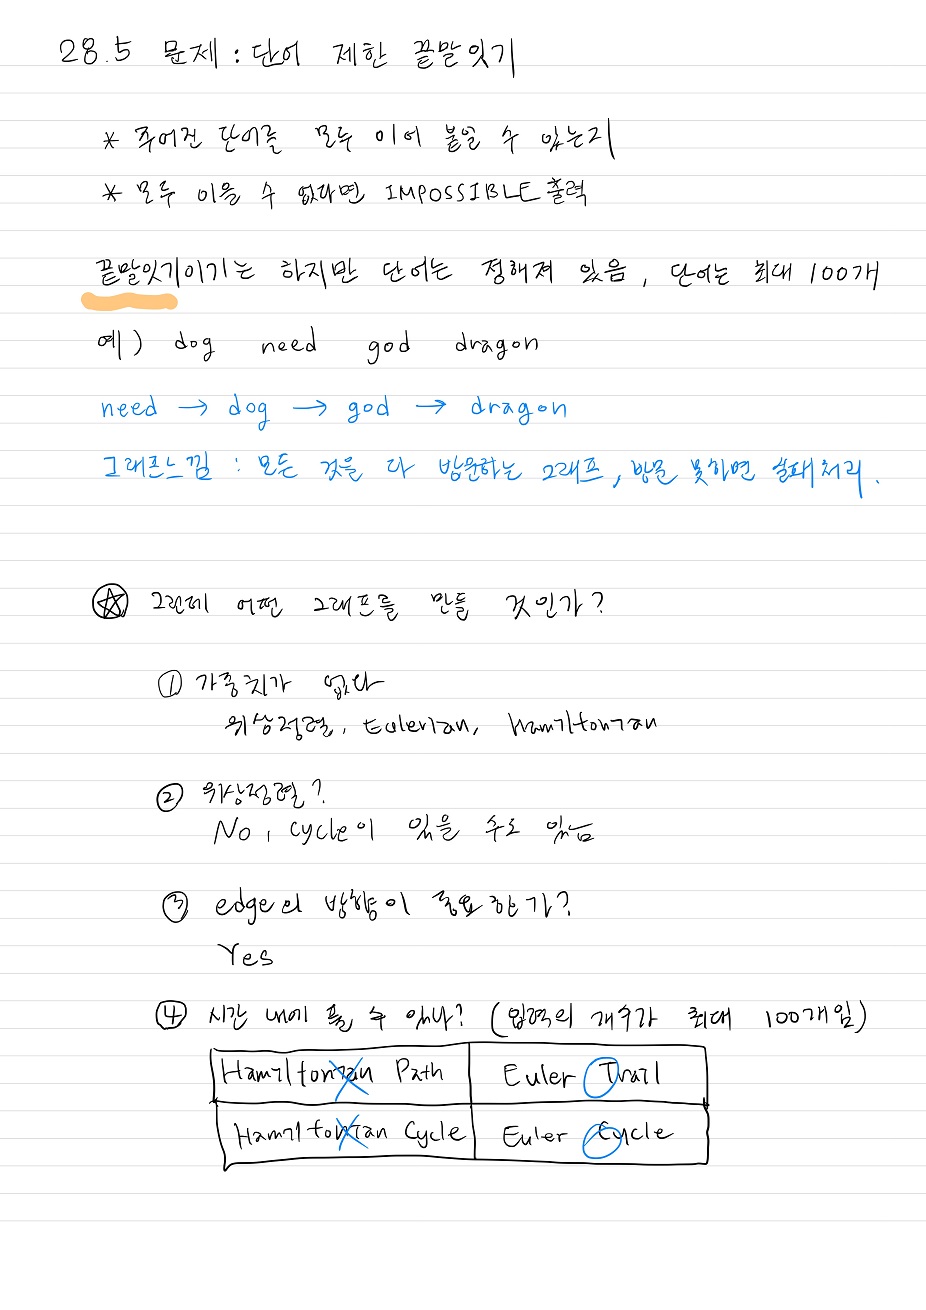 28.5 문제 : 단어 제한 끝말잇기
* 주어진 단어를 모두 이어 붙일 수 있는지
* 모두 이을 수 없다면 IMPOSSIBLE 출력
끝말잇기이기는 하지만 단어는 정해져 있음, 단어는 최대 100개
예) dog need god dragon
need → dog → god → dragon
그래프느낌 : 모든 것을 다 방문하는 그래프, 방문 못하면 실패처리.
☆ 그런데 어떤 그래프를 만들 것인가?
① 가중치가 없다
위상정렬, Eulerian, Hamiltonian
② 위상정렬?
No, cycle이 있을 수도 있음
③ edge의 방향이 중요한가?
Yes
④ 시간 내에 풀 수 있나? (입력의 개수가 최대 100개임)
Hamiltonian Path Euler Trail
Hamiltonian Cycle Euler Cycle